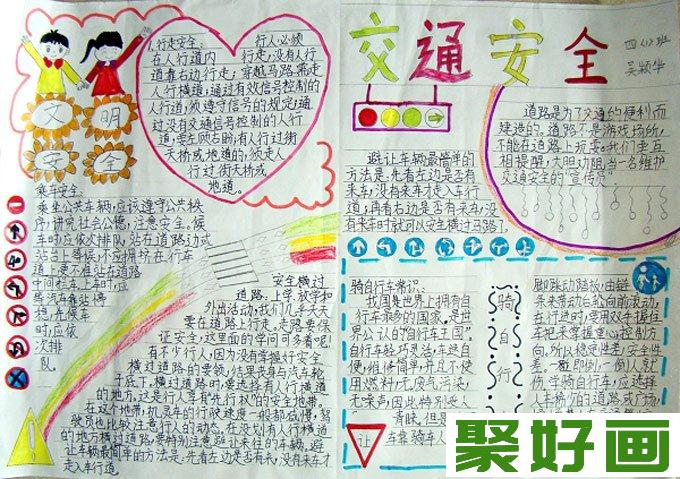 交通安全
四(1)班
吴颖华
文明
安全
1.行走安全: 行人必须
在人行道内 行走,没有人行
道靠右边行走;穿越马路须走
人行横道;通过有交通信号控制的
人行道,须遵守信号的规定;通
过没有交通信号控制的人行
道,要左顾右盼;有人行过街
天桥或地道的,须走人
行过街天桥或
地道。
道路是为了交通的便利而
建造的。道路不是游戏场所,
不能在道路上玩耍。我们要互
相提醒,大胆劝阻,当一名维护
交通安全的"宣传员"
避让车辆最简单的
方法是:先看左边是否有
来车,没有来车才走入车行
道;再看右边是否有来车,没
有来车时就可以安全横过马路了。
乘车安全:
乘坐公共车辆,应该遵守公共秩
序,讲究社会公德,注意安全。候
车时,应依次排队,站在道路边或
站台上等候,不应拥挤在行车
道上,更不准站在道路
中间拦车。上车时,应
等汽车靠站停
稳,先候车
时,应依
次排
队。
安全横过
道路。上学、放学和
外出活动,我们几乎天天
要在道路上行走。走路要保
证安全,这里面的学问可多着呢!
有不少行人,因为没有掌握好安全
横过道路的要领,结果丧身与汽车轮
子底下。横过道路时,要选择有人行横道
的地方,这是行人享有"先行权"的安全地带。
在这个地带,机灵车的行驶速度一般都减慢,驾
驶员也比较注意行人的动态。在没划有人行横道
的地方横过道路,要特别注意避让来往的车辆。避
让车辆最简单的方法是:先看左边是否有来,没有来车才
走入车行道。
骑自行车常识:
我国是世界上拥有自
行车最多的国家。是世
界公认的"自行车王国"。
自行车轻巧灵活,车速自
便,维修简单,并且不使
用燃料,无废气污染,
无噪声,因此特别受人
青睐。但是
让
车靠骑车人
骑自行
脚跳动踏板,由链
条来带动右轮向前滚动,
在行进时,要用双手握住
车把来掌握重心控制方
向。所以稳定性差,安全性差。
一碰即倒,一倒人就
伤。学骑自行车,应选择
人车稀少的道路或广场,
聚好画